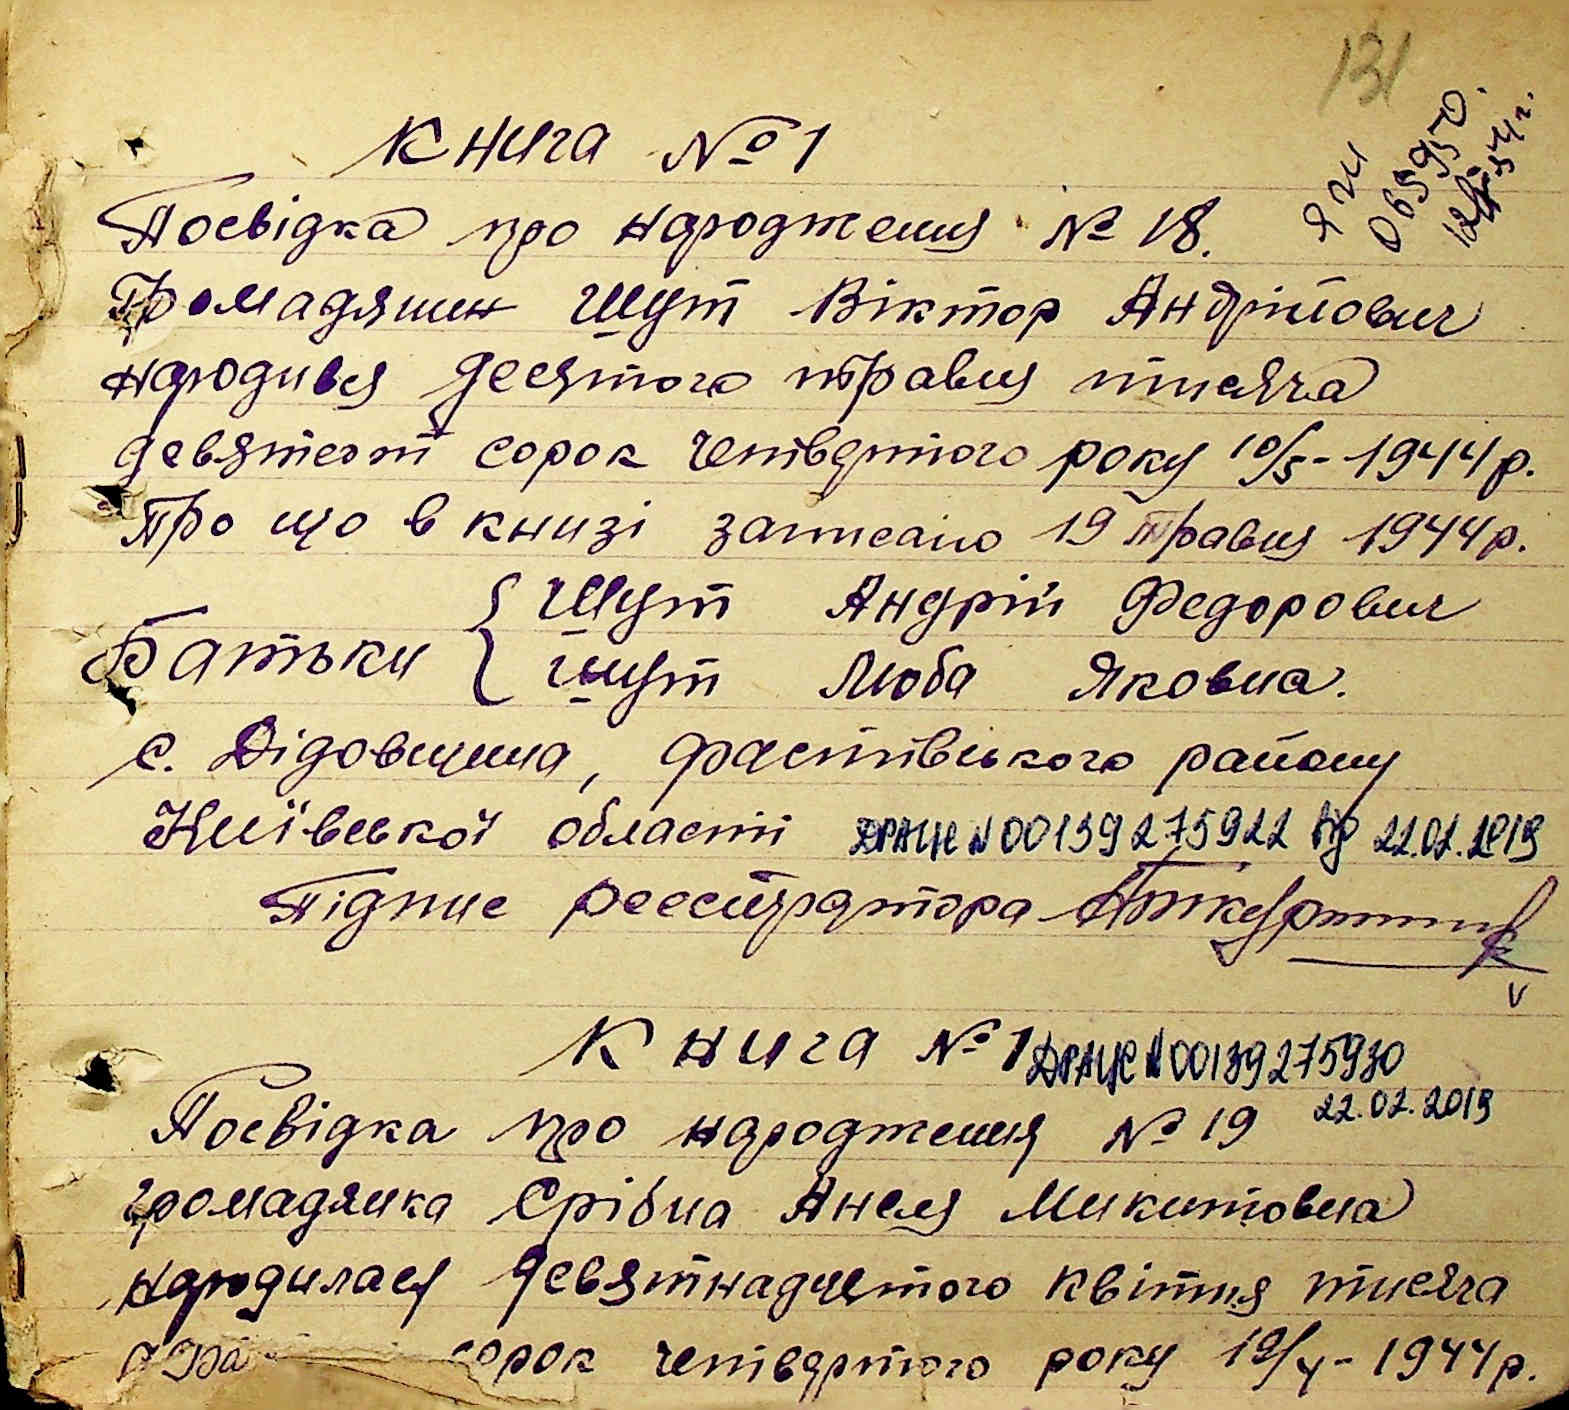 131
Книга № 1
ЯЮ
069950
Посвідка про народження № 18.
Громадянин Шут Віктор Андрійович
народився десятого травня тисяча
девятсот сорок четвертого року 10/5 - 1944 р.
Про що в книзі записано 19 травня 1944 р.
Батьки { Шут Андрій Федорович
Шут Люба Яковна.
с. Дідовщина, Фастівського району
Київської області ДРАЦС N 00139275922 від 22.02.2019
Підпис реєстратора
Книга № 1 ДРАЦС N 00139275930
22.02.2019
Посвідка про народження № 19
громадянка Срібна Анеля Микитовна
народилася девятнадцятого квітня тисяча
сорок четвертого року 19/4 - 1944 р.